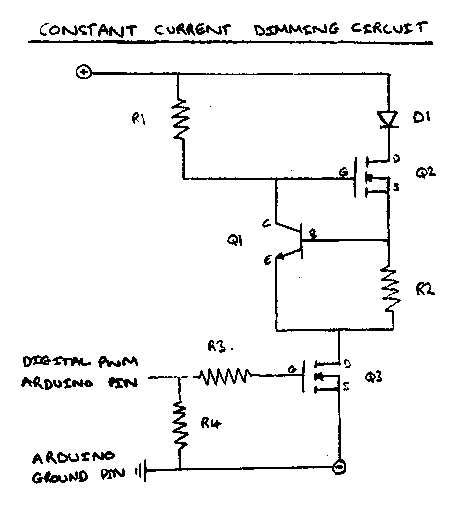 CONSTANT CURRENT DIMMING CIRCUIT
+
R1
D1
D
G
Q2
S
C
Q1
B
E
R2
R3.
DIGITAL PWM
ARDUINO PIN
D
G
Q3
S
R4
ARDUINO
GROUND PIN
-